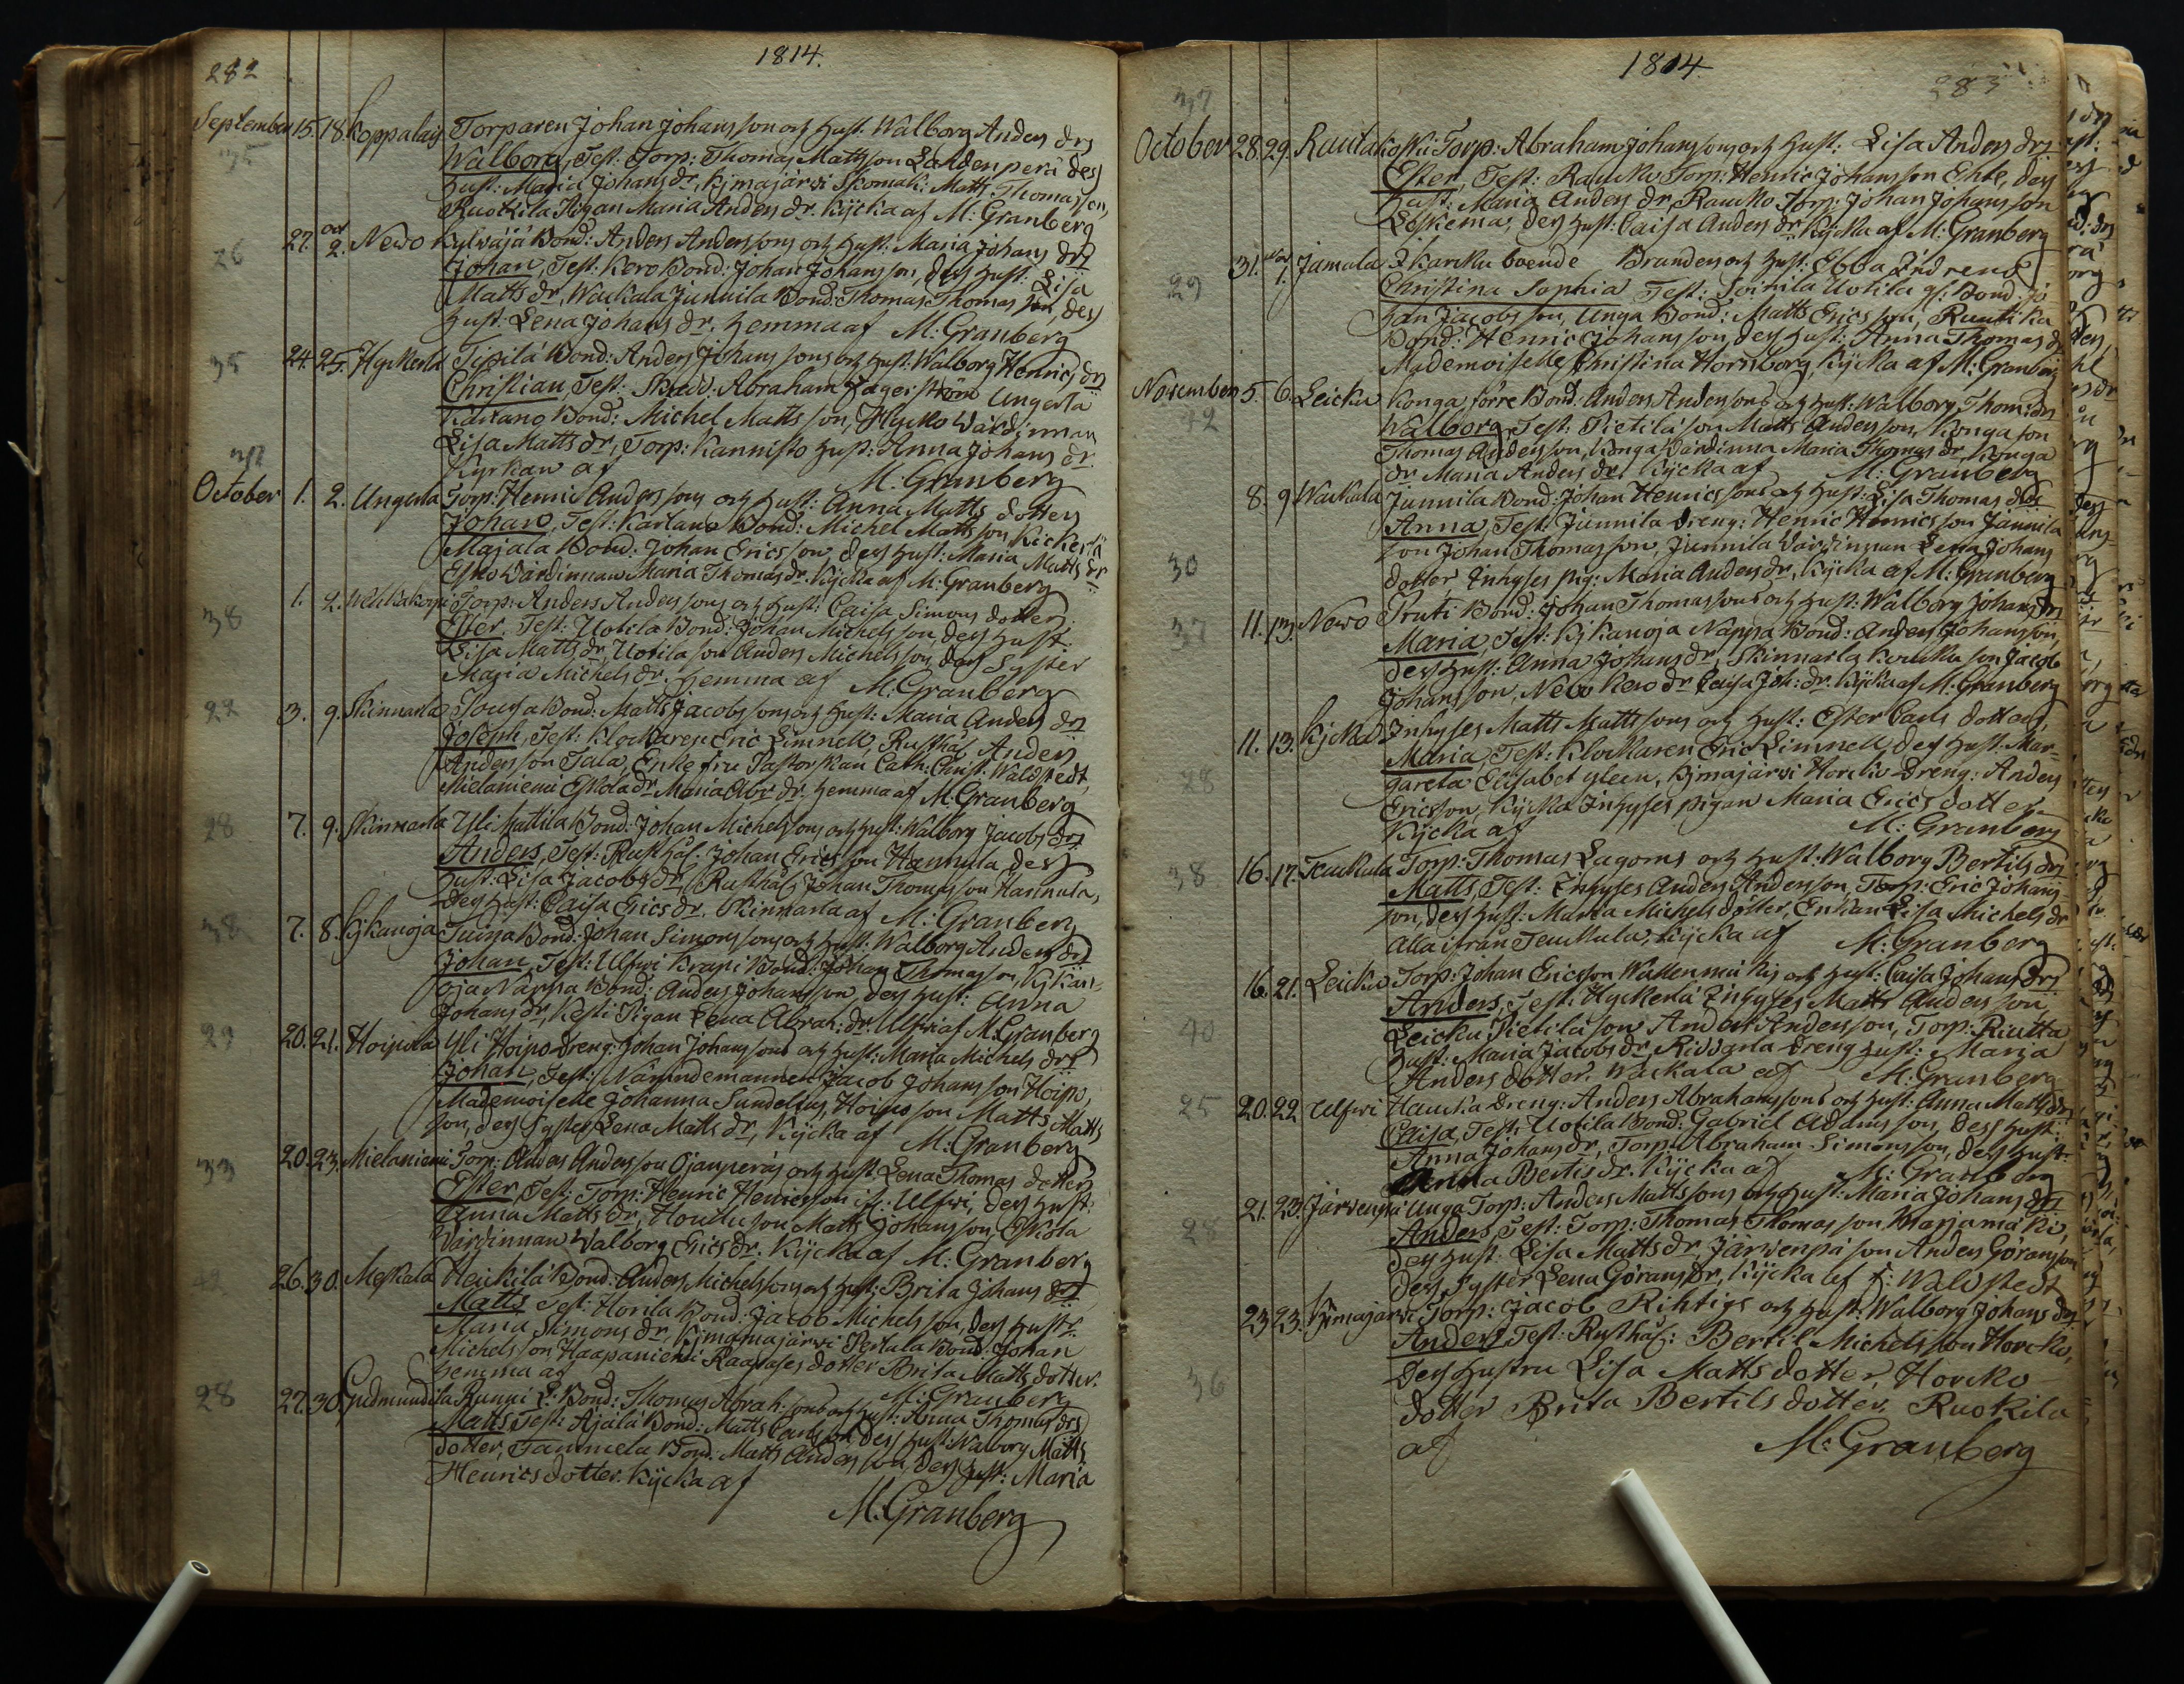 282
1814.
September 15. 18. Koppalais Torparen Johan Johansson och Hust. Walborg Anders drs
35
Walborg, Test: Torp: Thomas Mattsson Lahdenperä des
Hust: Maria Johans dr, Kjmajärvi Skomak: Matts Thomasson,
Ruokila Pigan Maria Anders dr. Kycka af M: Granberg
27. oct 2. Newo Kylväjä Bond: Anders Anderssons och Hust: Maria Johans drs
26
Johan, Test: Kero Bond: Johan Johansson, des Hust: Lisa
Matts dr, Waukala Junnila Bond: Thomas Thomas son, des
Hust: Lena Johans dr. hemma af M: Granberg
24. 25. Hyckerlä Pipilä Bond: Anders Johanssons och Hust: Walborg Henrics drs
35
Christian, Test: Skadd: Abraham Lagerström Ungerla
Karlano Bond: Michel Matts son, Hycko Wärdinnan
Lisa Matts dr, Torp: Kannisto Hust: Anna Johans dr.
Kyrkan af M: Granberg
37
October 1. 2. Ungerla Torp: Henric Anderssons och Hust: Anna Matts dotters
Johan, Test: Karlano Bond: Michel Mattsson, Kickerlä
Majala Bond: Johan Ericsson, des Hust: Maria Matts dr
Esko Wärdinnan Maria Thomas dr. Kycka af M: Granberg
1. 2. Wehkakorpi Torp: Anders Anderssons och Hust: Caisa Simons dotters
38
Ester, Test: Uotila Bond: Johan Michelsson, des Hust:
Lisa Matts dr, Uotila son Anders Michelsson, des Syster
Maria Michels dr. hemma af M: Granberg
3. 9. Skinnarla Jousa Bond: Matts Jacobssons och Hust: Maria Anders drs
22
Joseph, Test: Klockaren Eric Limnell, Rusthål: Anders
Andersson Tala, Enkefru Pastorskan Cath: Christ: Waldstedt,
Mielaniemi Eskola dr Maria Abr: dr. hemma af M: Granberg
7. 9. Skinnarla Yli Mattila Bond: Johan Michelssons och Hust: Walborg Jacobs drs
28
Anders, Test: Rusthål: Johan Ericsson Hannula, des
Hust: Lisa Jacobs dr, Rusthål: Johan Thomasson Hannula,
des Hust: Caisa Erics dr. Skinnarla af M: Granberg
7. 8. Kjkanoja Tuina Bond: Johan Simonssons och Hust: Walborg Anders drs
38
Johan, Test: Ulfwi Krapi Bond: Johan Thomasson, Kjkan-
oja Nappa Bond: Anders Johansson, des Hust: Anna
Johans dr, Kesti Pigan Lena Abrah: dr. Ulfwi af M: Granberg
20. 21. Hoipola Yli Hoipo Dreng: Johan Johanssons och Hust: Maria Michels drs
29
Johan, Test: Nämndemannen Jacob Johansson Hoipo,
Mademoiselle Johanna Sundelius, Hoipo son Matts Matts
son, des Syster Lena Matts dr, Kycka af M: Granberg
20. 23. Mielaniemi Torp: Anders Andersson Ojanperäs och Hust: Lena Thomas dotters
33
Ester, Test: Torp: Henric Henricsson if: Ulfwi, des Hust:
Anna Matts dr, Houtu son Matts Johansson, Eskola
Wärdinnan Walborg Erics dr. Kycka af M: Granberg
26. 30. Meskala Heikilä Bond: Anders Michelssons och Hust: Brita Johans drs
42
Matts Test: Horila Bond: Jacob Michelsson, des Hust:
Maria Simons dr, Kjmajärwi Pertula Bond: Johan
Michelsson Haapaniemi Raaskas dotter Brita Matts dotter.
hemma af M: Granberg
27. 30. Gudmundila Runni L: Bond: Thomas Abrah:sons och Hust: Anna Thomas drs
28
Matts, Test: Äjälä Bond: Matts Carlsson, des Hust: Walborg Matts
dotter, Tammela Bond: Matts Andersson, des Hust: Maria
Henrics dotter. Kycka af
M: Granberg
1814
283
37
October 28. 29. Rautakoski Torp: Abraham Johanssons och Hust: Lisa Anders drs
Ester, Test: Rauko Torp: Henric Johansson Ehle, des
Hust: Maria Anders dr, Rauko Torp: Johan Johansson
Leskema, des Hust: Caisa Anders dr. Kycka af M: Granberg
31. Nov 1. Jamala I Karku boende Branders och Hust: Ebba Indrens
29
Christina Sophia Test: Soinila Uotila gf: Bond: Jo
han Jacobsson, Unga Bond: Matts Ericsson, Rautika
Bond: Henric Johansson, des Hust: Anna Thomas d
Mademoiselle Christina Hornborg, Kycka af M: Granberg
November 5. 6. Leicku Konga förre Bond: Anders Anderssons och Hust: Walborg Thom: drs
42
Walborg, Test: Pietilä son Matts Andersson, Konga son
Thomas Andersson, Konga Wärdinna Maria Thomas dr, Konga
dr Maria Anders dr, Kycka af M: Granberg
8. 9. Waukala Junnila Bond: Johan Henricssons och Hust: Lisa Thomas drs
30
Anna, Test: Junnila Dreng: Henric Henricsson Junnila
son Johan Thomasson, Junnila Wärdinnan Lena Johans
dotter Inhyses Pig: Maria Anders dr, Kycka af M: Granberg
11. 13. Newo Pruti Bond: Johan Thomassons och Hust: Walborg Johans drs
37
Maria, Test: Kjkanoja Nappa Bond: Anders Johansson,
des Hust: Anna Johans dr, Skinnarla Kouku son Jacob
Johansson, Newo Kero dr Caisa Joh: dr. Kycka af M: Granberg
11. 13. Kycka Inhyses Matts Mattssons och Hust: Ester Carls dotters,
28
Maria, Test: Klockaren Eric Limnell, des Hust: Mar-
gareta Elisabet Gleen, Kjmajärwi Horcko Dreng: Anders
Ericsson, Kycka Inhyses Pigan Maria Erics dotter
Kycka af M: Granberg
16. 17. Teuckula Torp: Thomas Lagoms och Hust: Walborg Bertils drs
38
Matts, Test: Inhyses Anders Andersson, Torp: Eric Johans-
son, des Hust: Maria Michels dotter, Enkan Lisa Michels dr
alla ifrån Teuckula, Kycka af M: Granberg
16. 21. Leicku Torp: Johan Ericsson Wallenmäkis och Hust: Caisa Johans drs
40
Anders, Test: Hyckerlä Inhyses Matts Andersson,
Leicku Pietilä son Anders Andersson, Torp: Riutta
Hust: Maria Jacobs dr, Ridvarla Dreng Hust: Maria
Anders dotter. Waukala af M: Granberg
20. 22. Ulfwi Hauka Dreng: Anders Abrahamssons och Hust: Anna Matts drs
25
Caisa, Test: Uotila Bond: Gabriel Adamsson, des Hust:
Anna Johans dr, Torp: Abraham Simonsson, des Hust:
Anna Bertils dr. Kycka af M: Granberg
21. 23. Järvenpä Unga Torp: Anders Mattssons och Hust: Maria Johans drs
28
Anders, Test: Torp: Thomas Thomasson Marjamäki,
des Hust: Lisa Matts dr, Järwenpä son Anders Göransson
des Syster Lena Görans dr, Kycka af F: Waldstedt
23 23. Kjmajärvi Torp: Jacob Rihtigs och Hust: Walborg Johans drs
36
Anders Test: Rusthål: Bertil Michelsson Horcko,
des Hustru Lisa Matts dotter, Horcko
dotter Brita Bertils dotter, Ruokila
af M: Granberg